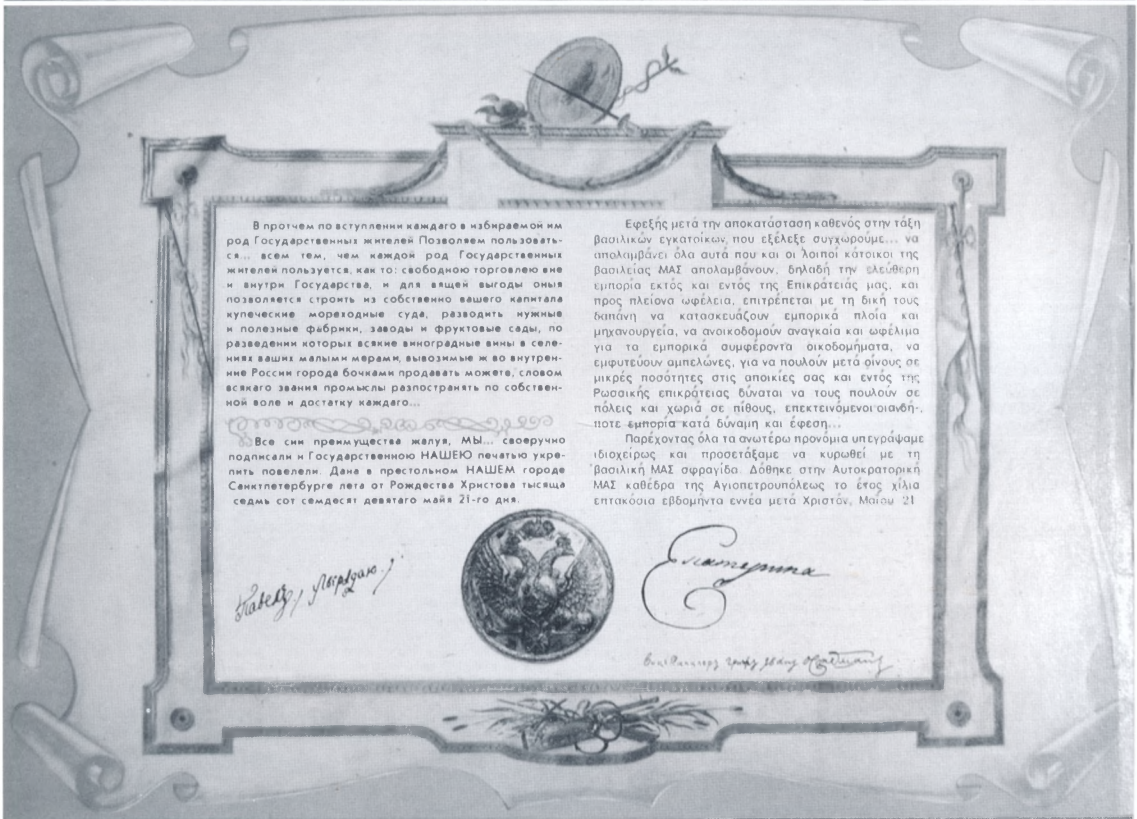 В протчем по вступлении каждаго в избираемой им
род Государственных жителей Позволяем пользовать-
ся... всем тем, чем каждой род Государственных
жителей пользуется, как то: свободною торговлею вне
и внутри Государства, и для вящей выгоды оныя
позволяется строить из собственно вашего капитала
купеческие мореходные суда, разводить нужные
и полезные фабрики, заводы и фруктовые сады, по
разведении которых всякие виноградные вины в селе-
ниях ваших малыми мерами, вывозимые ж во внутрен-
ние России города бочками продавать можете, словом
всякаго звания промыслы разпостранять по собствен-
ной воле и достатку каждаго...
Все сии преимущества жалуя, МЫ... своеручно
подписали и Государственною НАШЕЮ печатью укре-
пить повелели. Дана в престольном НАШЕМ городе
Санктпетербурге лета от Рождества Христова тысяща
седмь сот семдесят девятаго майя 21-го дня.
Εφεξής μετά την αποκατάσταση καθενός στην τάξη
βασιλικών εγκατοίκων, που εξέλεξε συγχωρούμε... να
απολαμβάνει όλα αυτά που και οι λοιποί κάτοικοι της
βασιλείας ΜΑΣ απολαμβάνουν, δηλαδή την ελεύθερη
εμπορία εκτός και εντός της Επικράτειάς μας, και
προς πλείονα ωφέλεια, επιτρέπεται με τη δική τους
δαπάνη να κατασκευάζουν εμπορικά πλοία και
μηχανουργεία, να ανοικοδομούν αναγκαία και ωφέλιμα
για τα εμπορικά συμφέροντα οικοδομήματα, να
εμφυτεύουν αμπελώνες, για να πουλούν μετά οίνους σε
μικρές ποσότητες στις αποικίες σας και εντός της
Ρωσσικής επικράτειας δύναται να τους πουλούν σε
πόλεις και χωριά σε πίθους, επεκτεινόμενοι οιανδή-
ποτε εμπορία κατά δύναμη και έφεση...
Παρέχοντας όλα τα ανωτέρω προνόμια υπεγράψαμε
ιδιοχείρως και προσετάξαμε να κυρωθεί με τη
βασιλική ΜΑΣ σφραγίδα. Δόθηκε στην Αυτοκρατορική
ΜΑΣ καθέδρα της Αγιοπετρουπόλεως το έτος χίλια
επτακόσια εβδομήντα εννέα μετά Χριστόν, Μαΐου 21
Екатерина